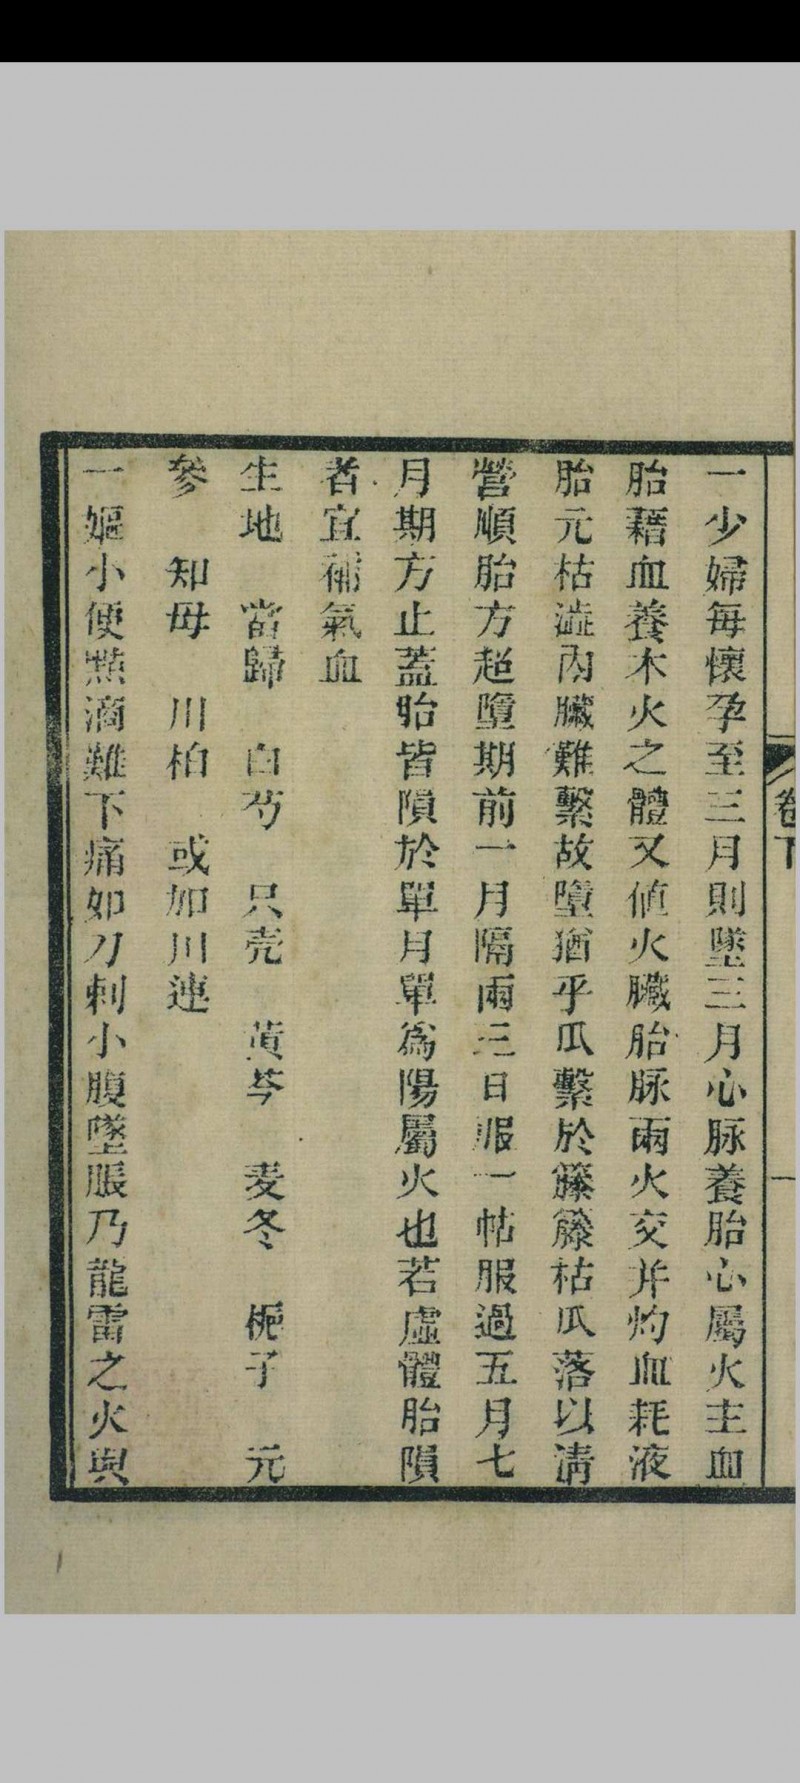 卷下
一
一少婦每懷孕至三月則墜三月心脉養胎心屬火主血
胎藉血養木火之體又値火臟胎脉兩火交并灼血耗液
胎元枯澁內臟難繫故墮猶乎瓜繫於籐籐枯瓜落以淸
營順胎方趂墮期前一月隔兩三日服一帖服過五月七
月期方止蓋胎皆隕於單月單爲陽屬火也若虛體胎隕
者宜補氣血
生地 當歸 白芍 只壳 黄芩 麦冬 梔子 元
參 知母 川柏 或加川連
一嫗小便㸃滴難下痛如刀刺小腹墜脹乃龍雷之火與